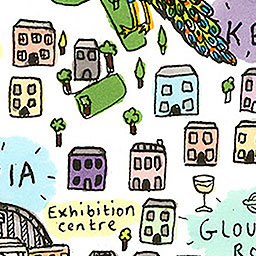 KE
IA
Exhibition
centre
GLOU
RO